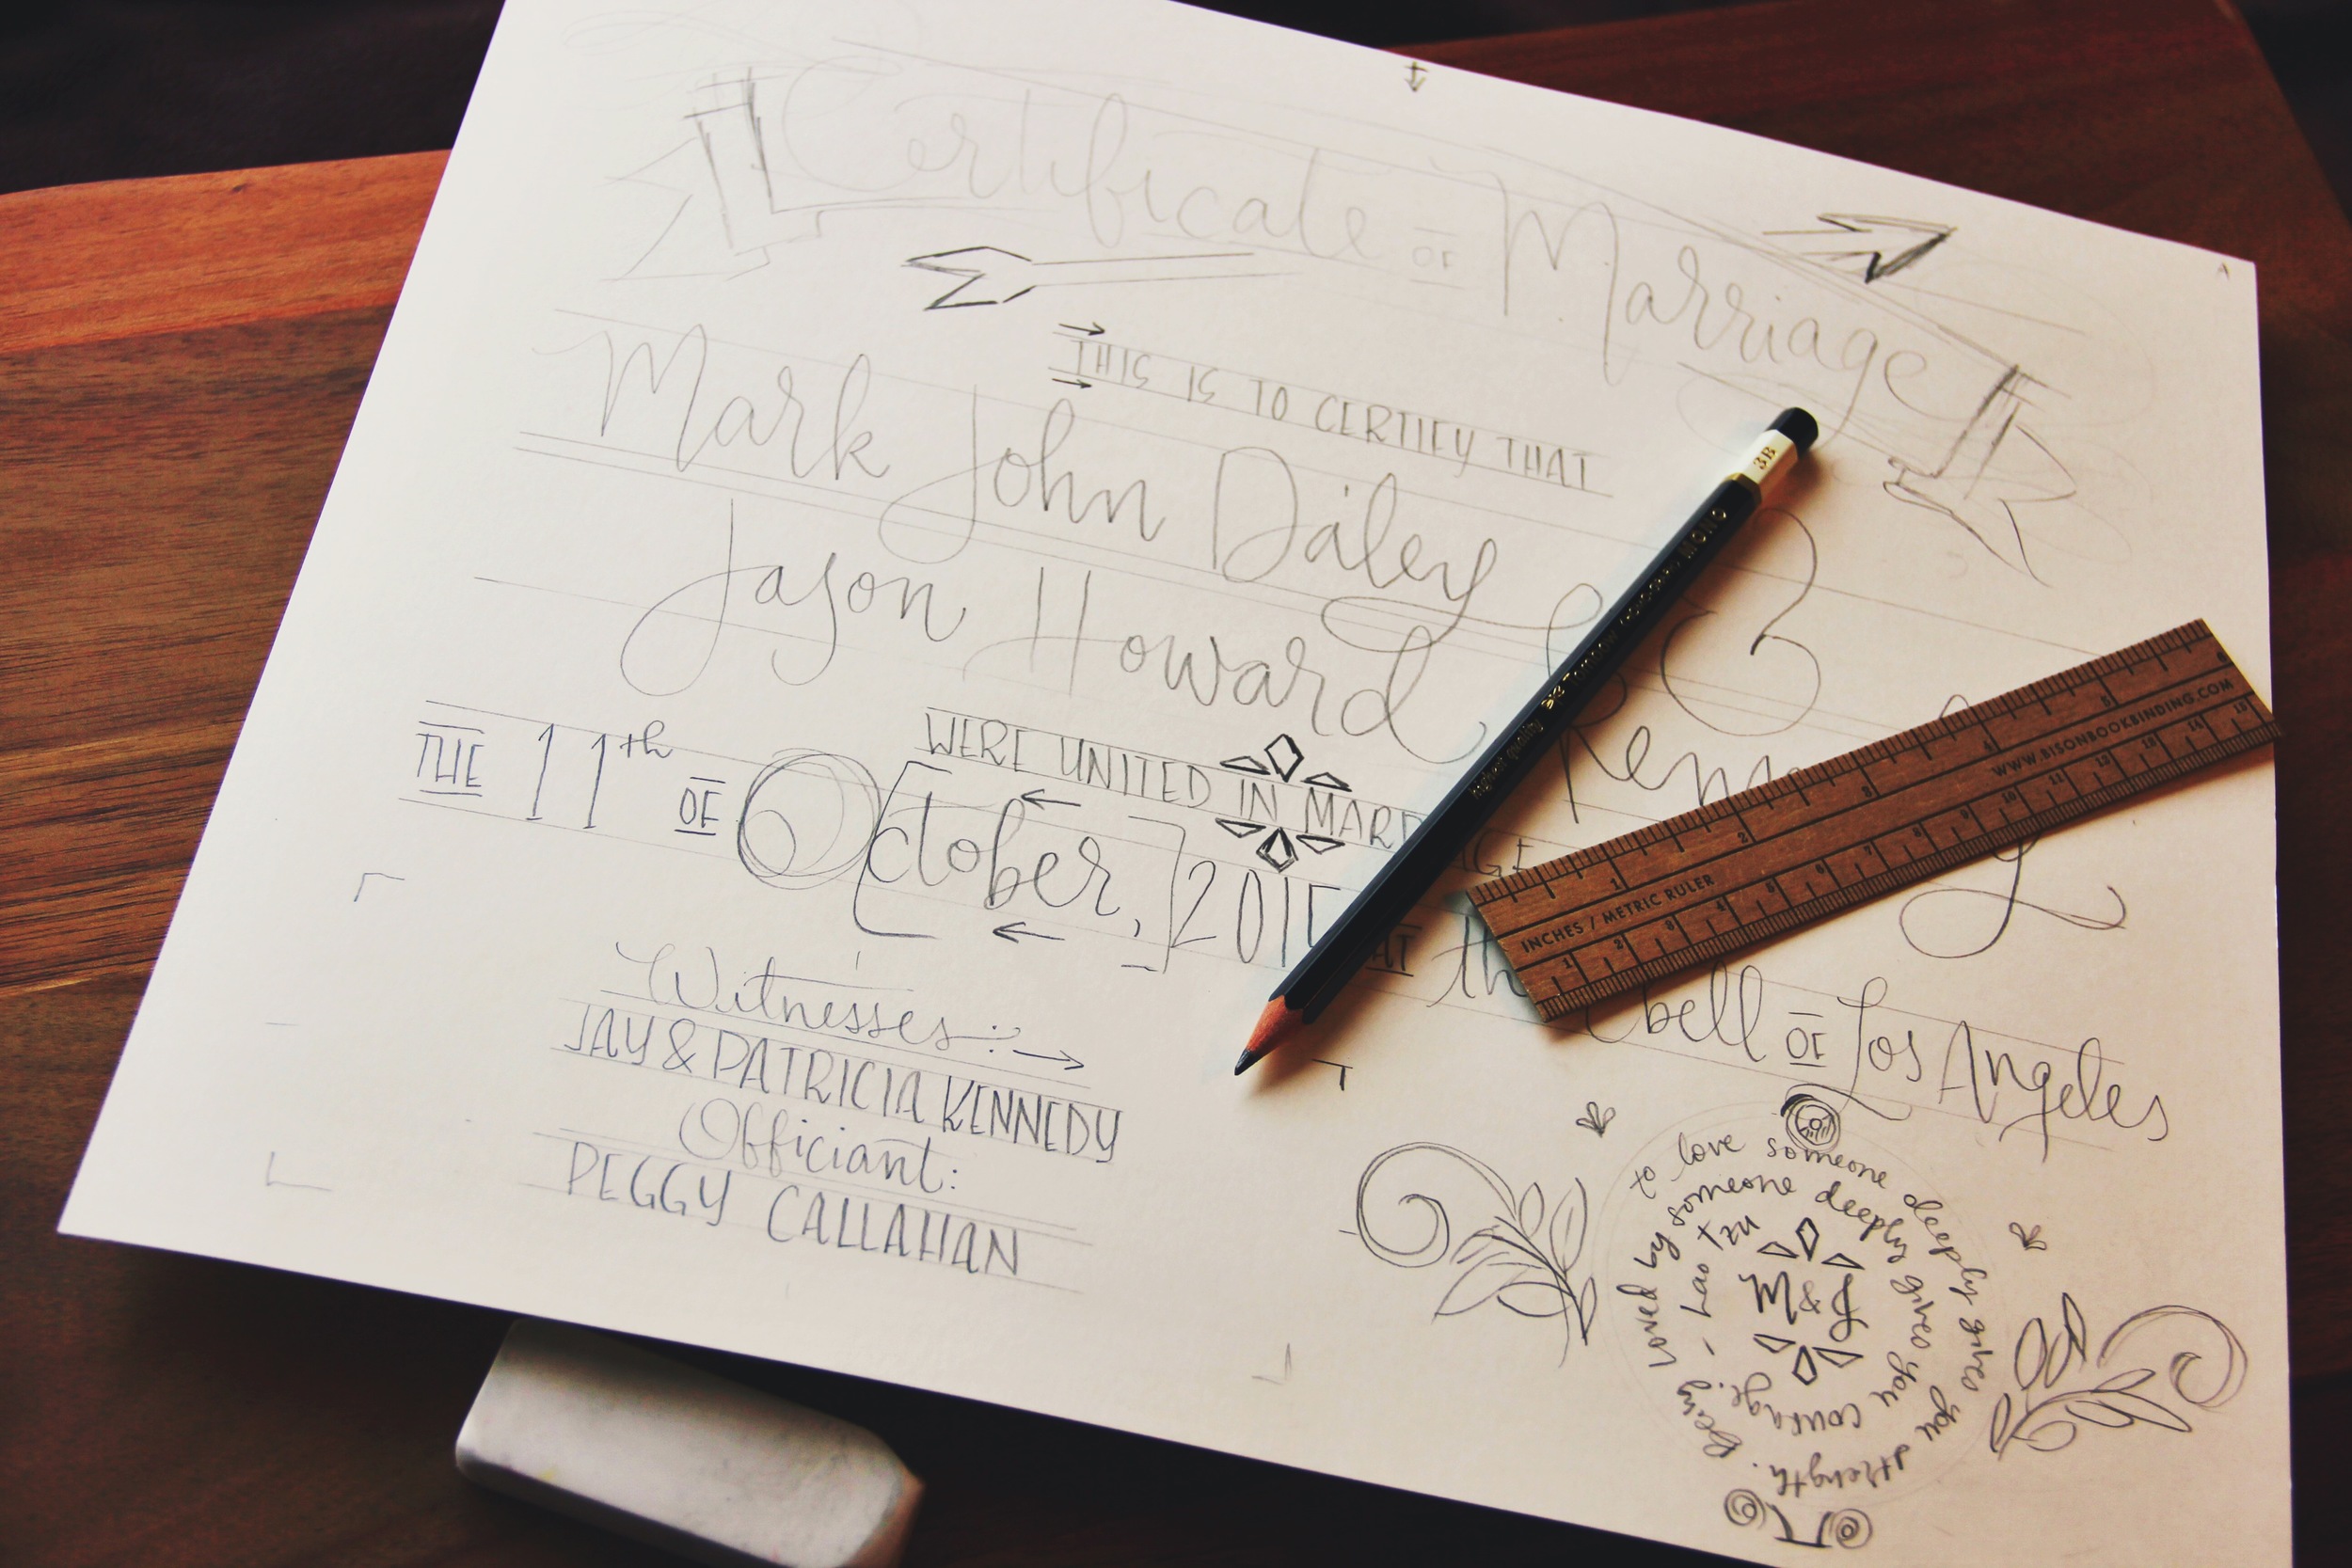 Certificate OF Marriage
THIS IS TO CERTIFY THAT
Mark John Daley &
Jason Howard
WERE UNITED IN
THE 11th OF October, 201
AT bell OF Los Angeles
Witnesses:
JAY & PATRICIA KENNEDY
Officiant:
PEGGY CALLAHAN
to love someone deeply gives you strength. Being loved by someone deeply gives you courage. - Lao Tzu
M&J
3B
MONO
Tombow
INCHES / METRIC RULER
WWW.BISONBOOKBINDING.COM
1 2 3 4 5 6
1 2 3 4 5 6 7 8 9 10 11 12 13 14 15